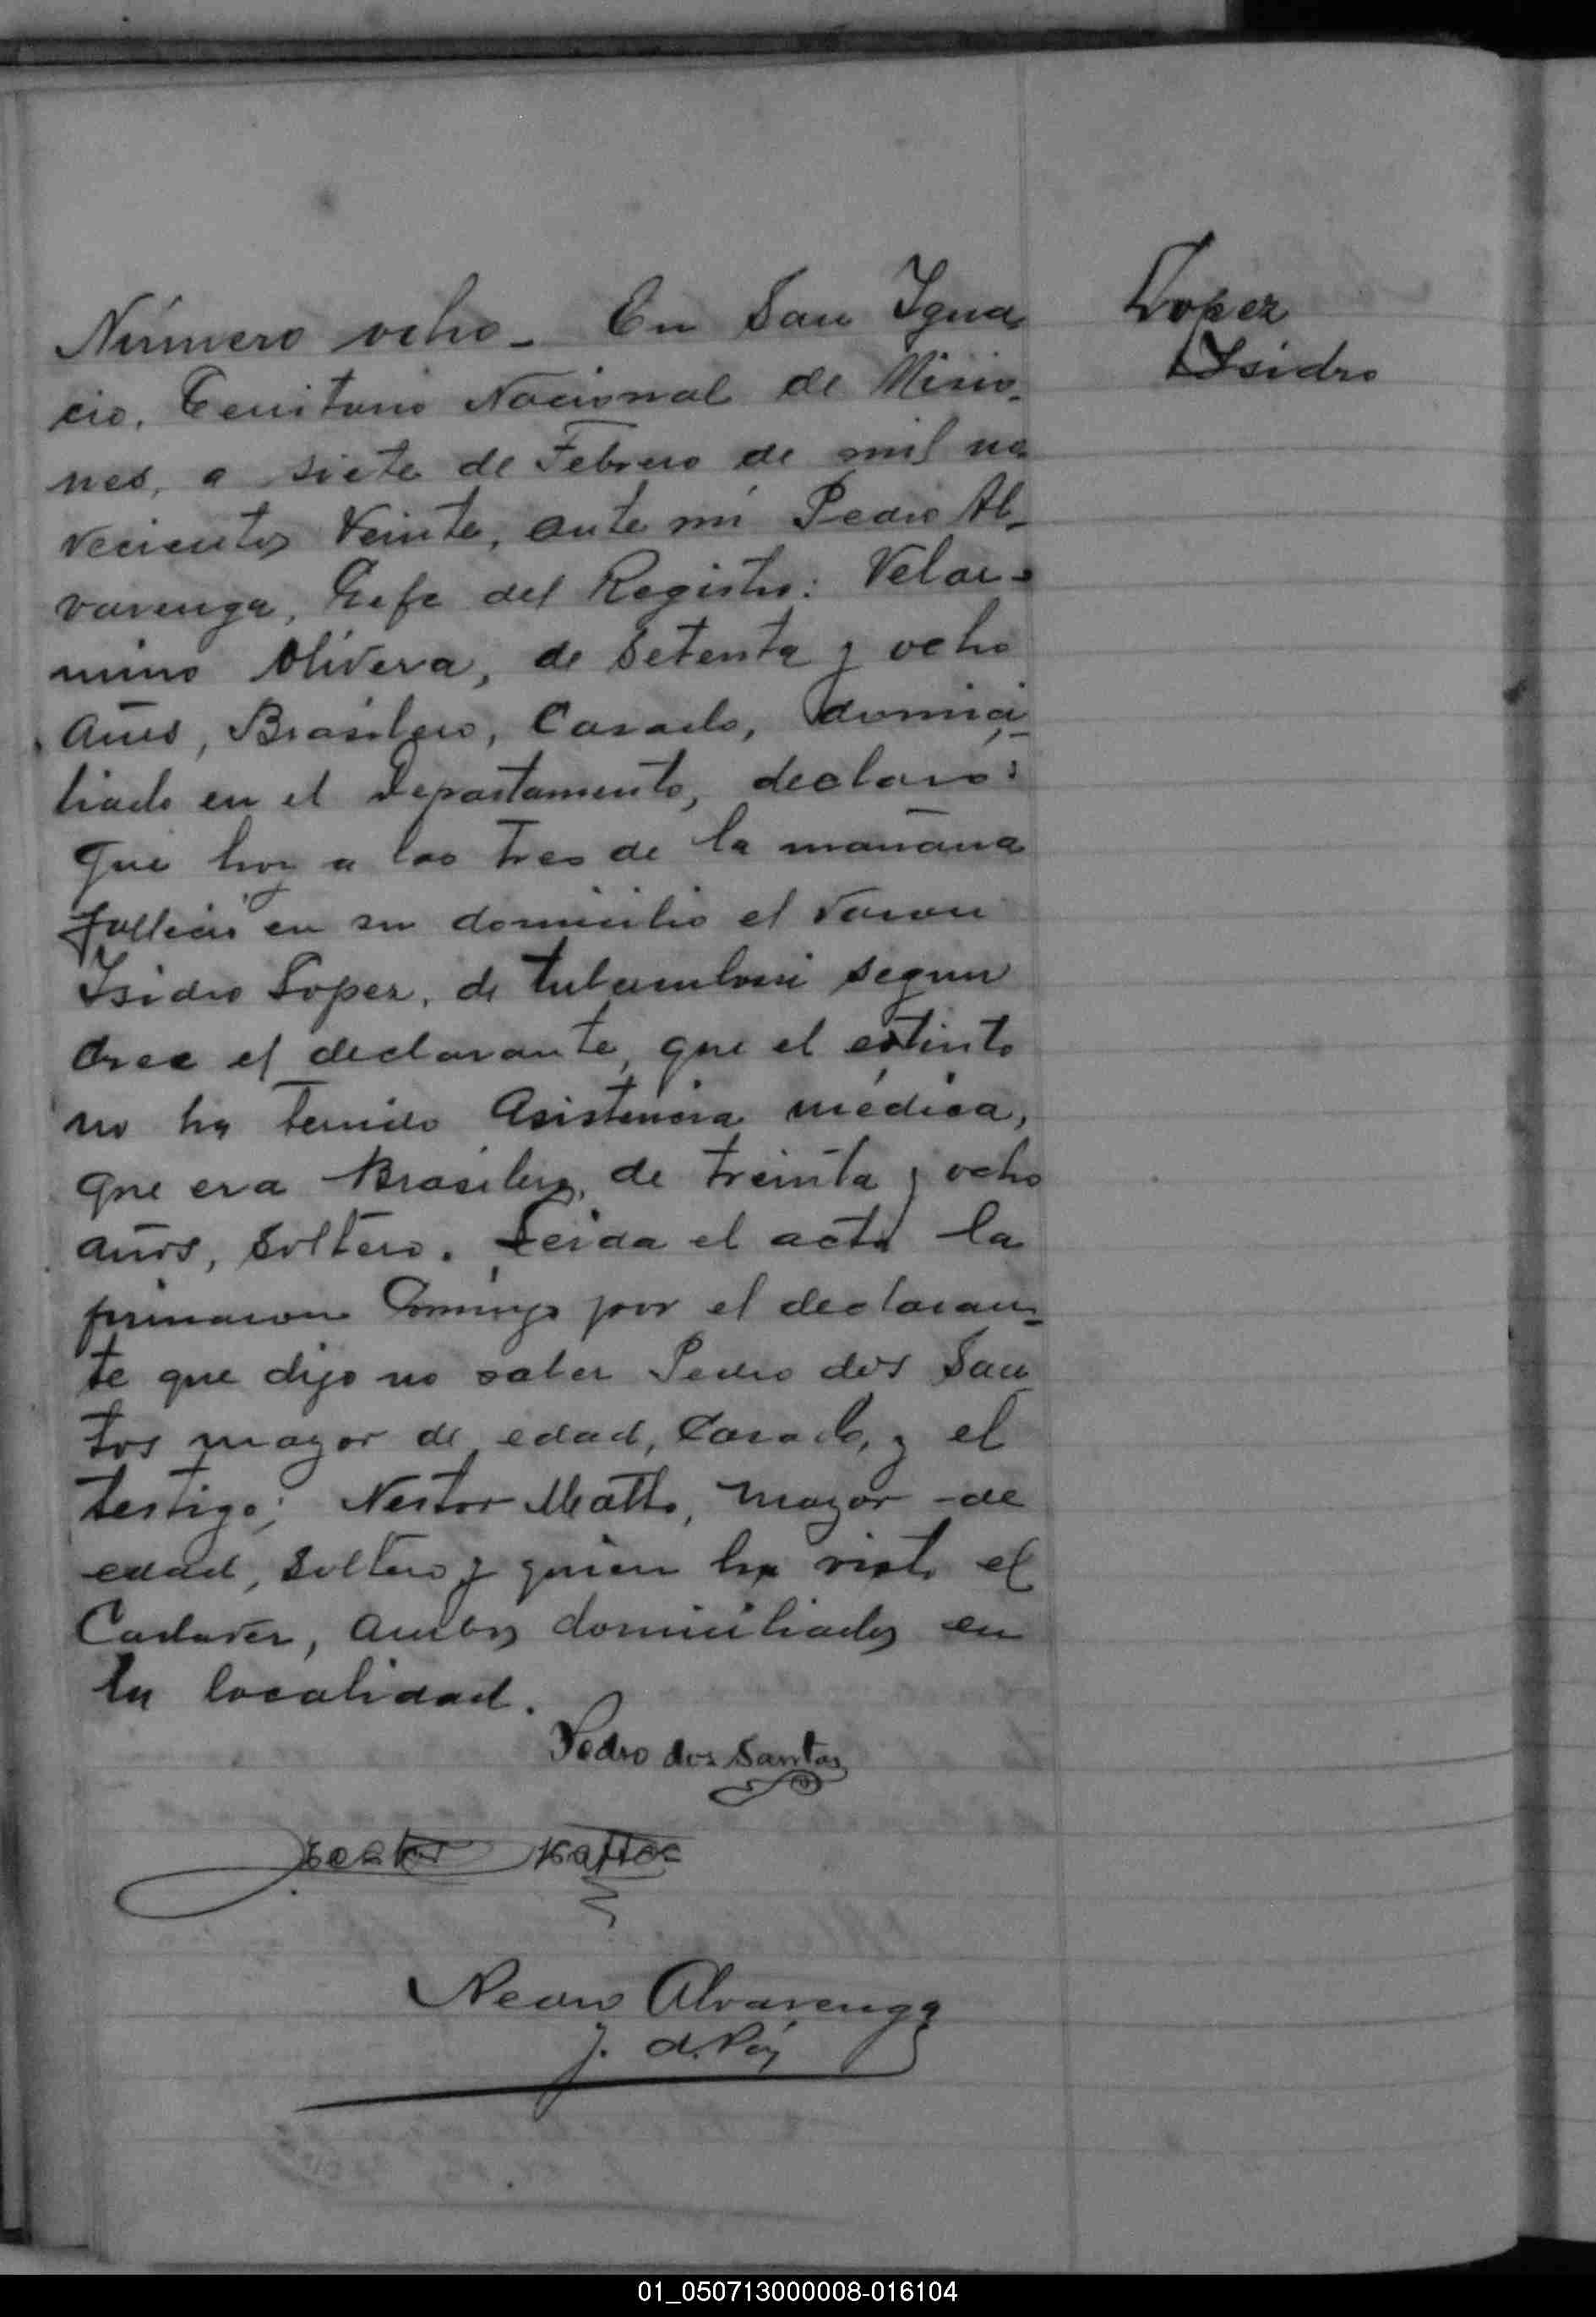 Número ocho_ En San Igna
Lopez
Isidro
cio, Territorio Nacional de Misio_
nes, a siete de Febrero de mil no
vecientos Veinte, ante mi Pedro Al_
varenga, Gefe del Registro: Velar-
mino Olivera, de Setenta y ocho
años, Brasilero, Casado, domici_
liado en el Departamento, declaró:
Que hoy a las tres de la mañana
falleció en su domicilio el varon
Isidro Lopez, de segun
cree el declarante, que el estinto
no ha tenido Asistencia médica,
que era Brasilero, de treinta y ocho
años, Soltero. Leida el acta la
firmaron Conmigo por el declaran_
te que dijo no saber Pedro dos San
tos mayor de edad, Casado, y el
testigo; Nestor Matto, mayor de
edad, Soltero y quien ha visto el
Cadaver, ambos domiciliados en
la localidad.
Pedro dos Santos
Nestor Mattos
Pedro Alvarenga
J. d. Paz
01_050713000008-016104